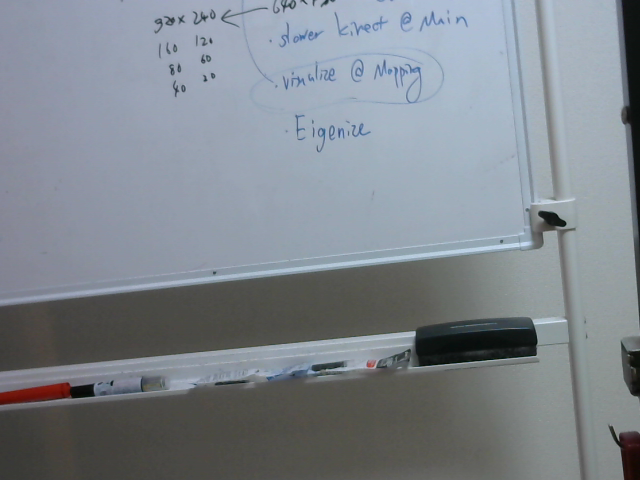 320 × 240 ← 640 ×
160 120
80 60
40 30
· slower kinect @ Main
· visualize @ Mapping
· Eigenize